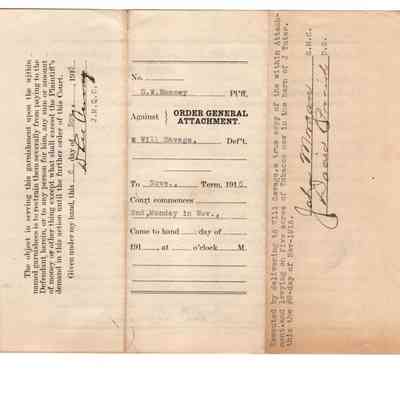 The object in serving this garnishment upon the within
named garnishees is to restrain them severally from paying to the
Defendant herein, or to any person for him, any sum or amount
of money or other thing except what shall exceed the Plaintiff's
demand in this action until the further order of this Court.
Given under my hand, this day of Nov. 191
J.M.Q.C.
No.
S.W.Ramsey Pl'ff.
Against ORDER GENERAL
ATTACHMENT.
Will Savage, Def't.
To Term, 191
Court commences
2nd,Monday in Nov.,
Came to hand day of
191 , at o'clock M.
Executed by delivering to Will Savage,a true copy of the within Attach-
ment,and levying on five acres of Tobacco now in the barn of J Tater.
this the day of Nov-1915.
John S.H.C.
David D.S.